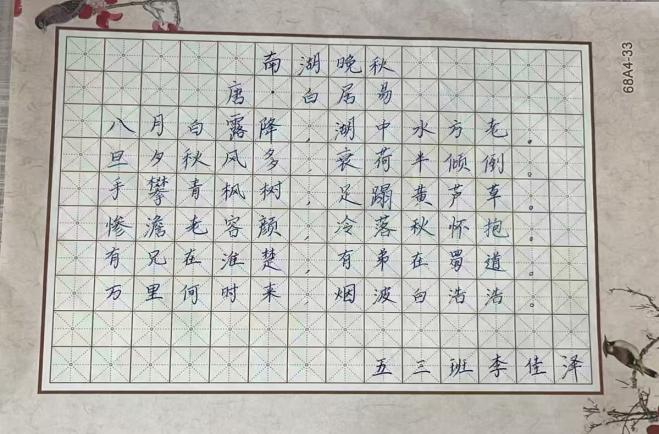 南湖晚秋
唐·白居易
八月白露降，湖中水方老。
旦夕秋风多，衰荷半倾倒。
手攀青枫树，足蹋黄芦草。
惨澹老容颜，冷落秋怀抱。
有兄在淮楚，有弟在蜀道。
万里何时来，烟波白浩浩。
五三班李佳泽
68A4-33